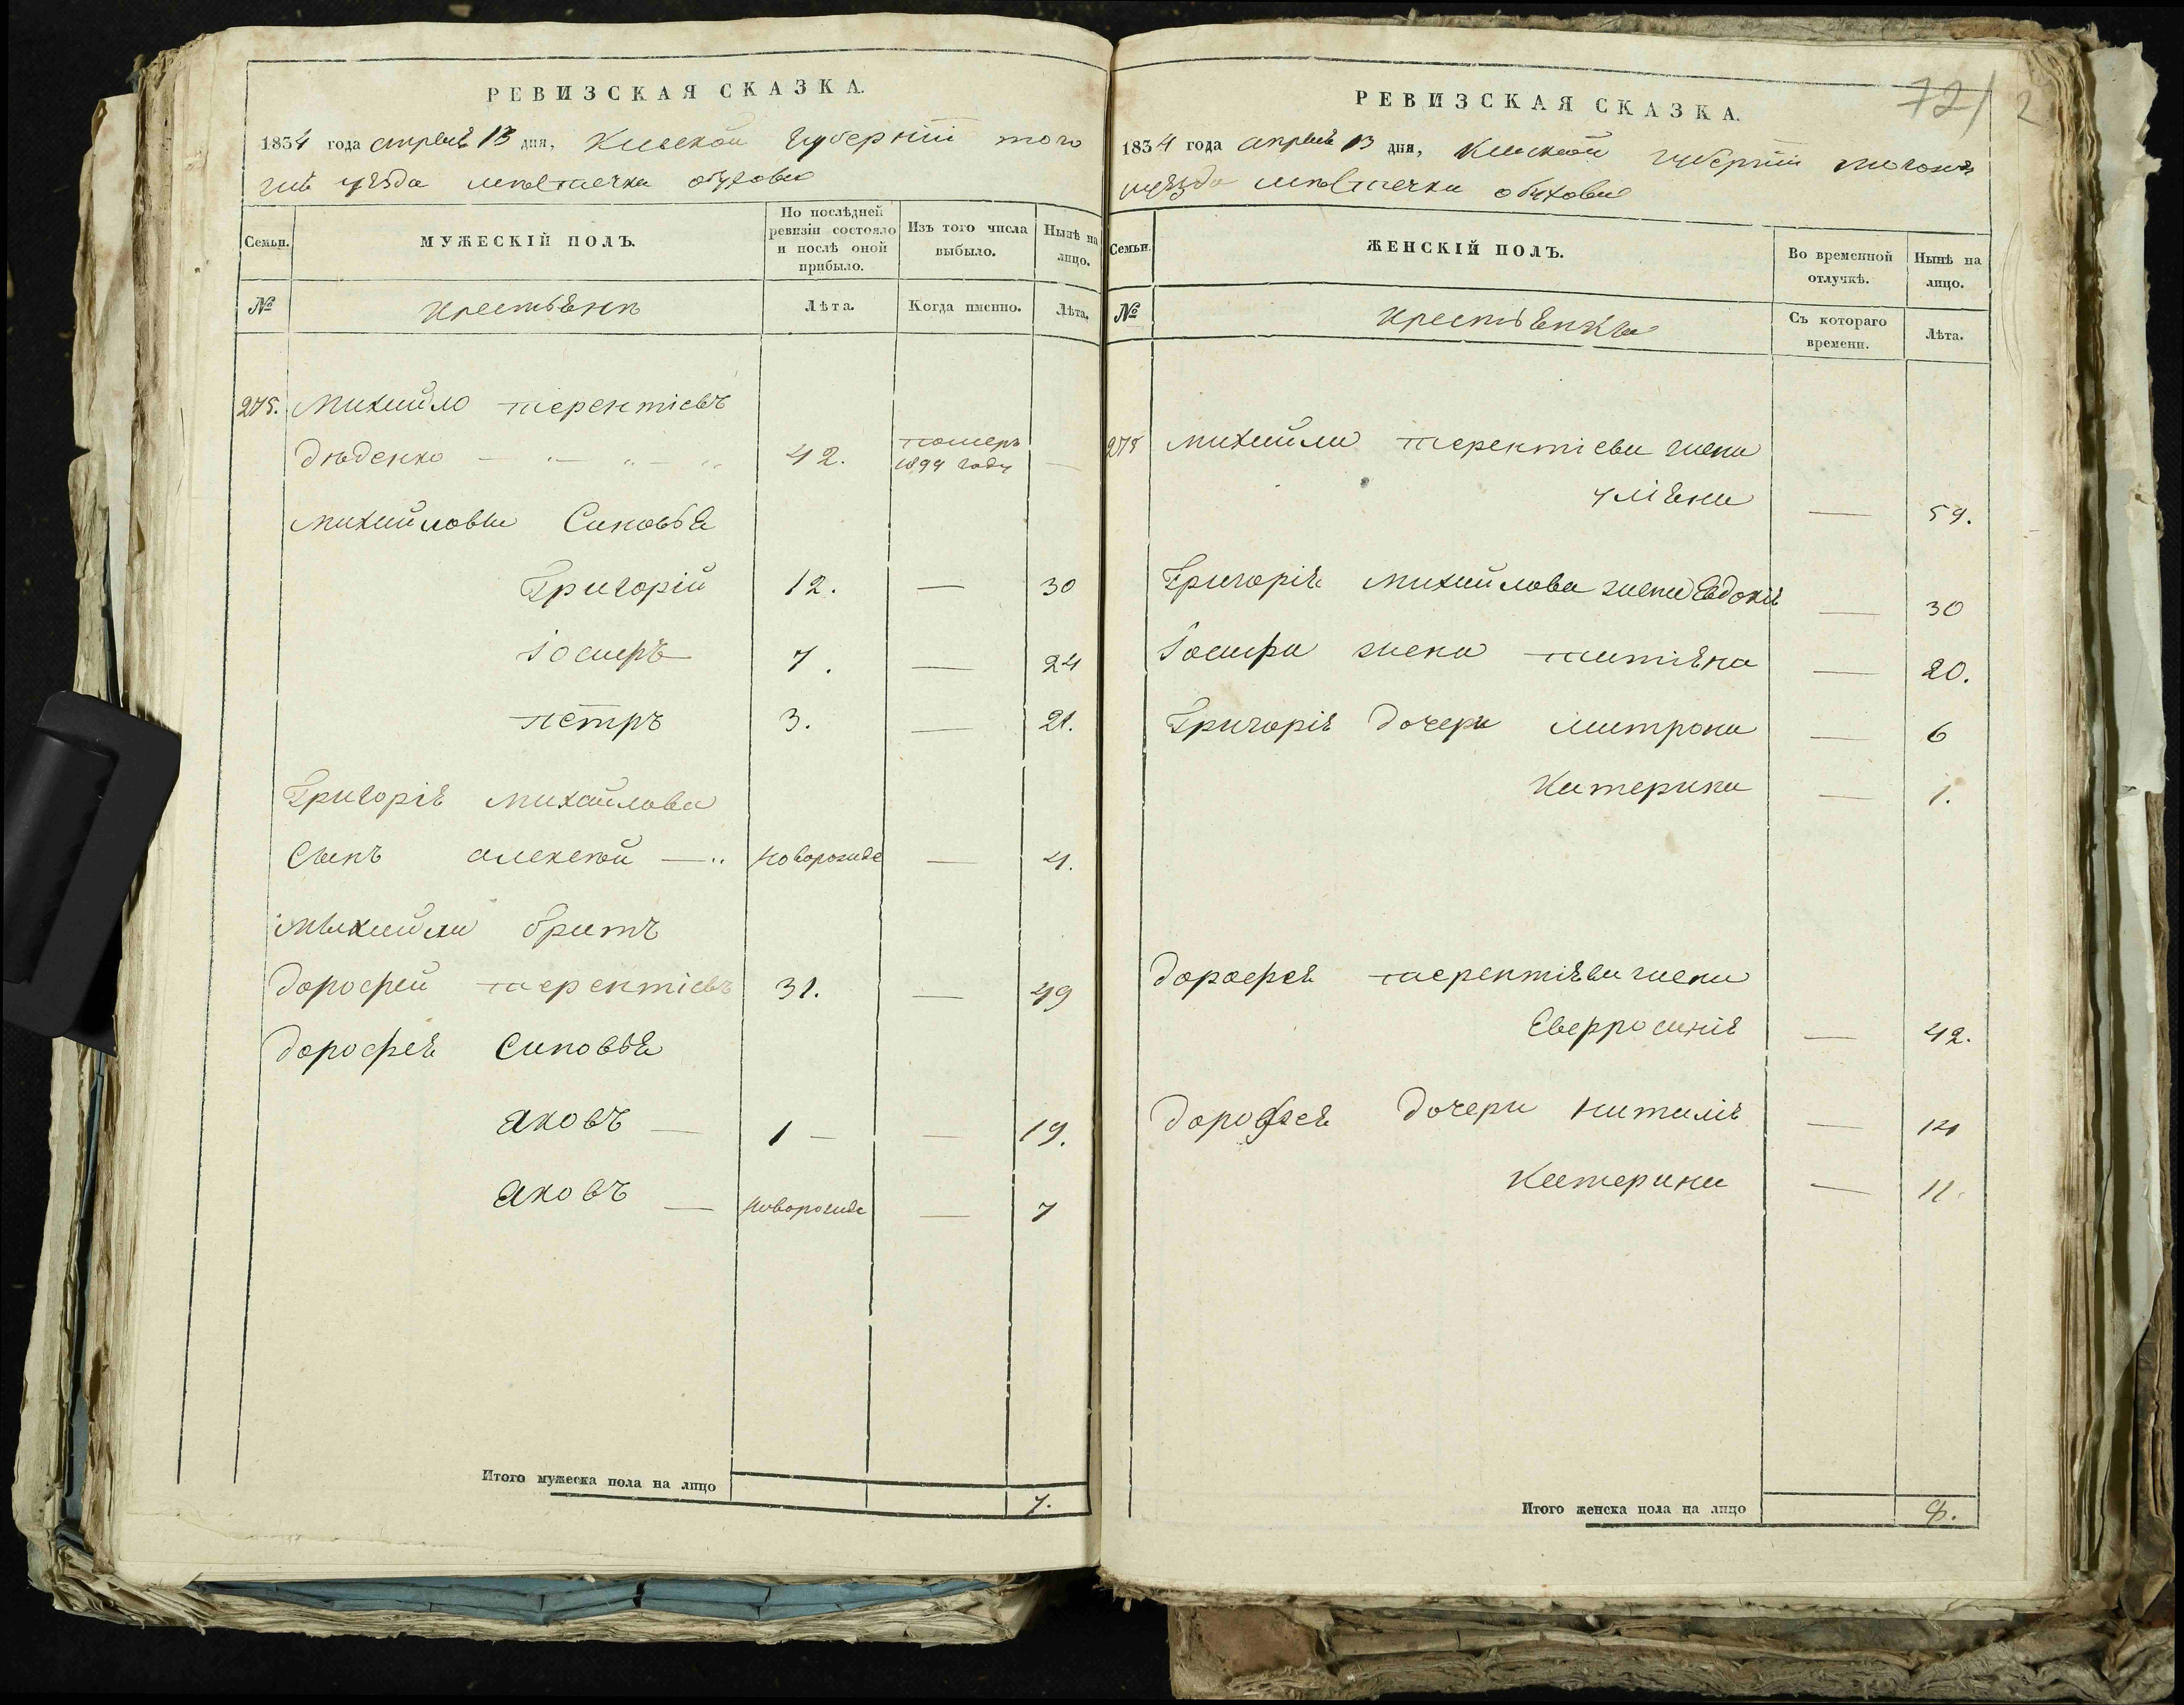 РЕВИЗСКАЯ СКАЗКА.
1834 года апреля 13 дня, Киевской губернии того
же уезда местечка обухова
Семьи.
МУЖЕСКІЙ ПОЛЪ.
По послѣдней ревизіи состояло и послѣ оной прибыло.
Изъ того числа выбыло.
Нынѣ на лицо.
№
крестьянъ
Лѣта.
Когда именно.
Лѣта.
275. михайло терентіевъ
дѣденко 42. померъ —
году
михайловы Синовья
Григорій 12. — 30
іосифъ 7. — 24
петръ 3. — 21.
Григорія михайлова
Сынъ алексей — новорожде — 4.
михайла братъ
дорофей терентіевъ 31. — 49
дорофея Синовья
яковъ — 1 — — 19.
яковъ — новорожде — 7
Итого мужеска пола на лицо 7.
72/2
РЕВИЗСКАЯ СКАЗКА.
1834 года апреля 13 дня, Киевской губернии тогожъ
уезда местечка обухова
Семьи.
ЖЕНСКІЙ ПОЛЪ.
Во временной отлучкѣ.
Нынѣ на лицо.
№
крестьянки
Съ котораго времени.
Лѣта.
275 михайла терентіева жена
улияна — 59.
Григорія михайлова жена Евдокія — 30
Іосифа жена татіяна — 20.
Григорія дочери матрона — 6
Катерина — 1.
дорофея терентіева жена
Евфросинія — 42.
дорофея дочери наталія — 14
Катерина — 11.
Итого женска пола на лицо 8.